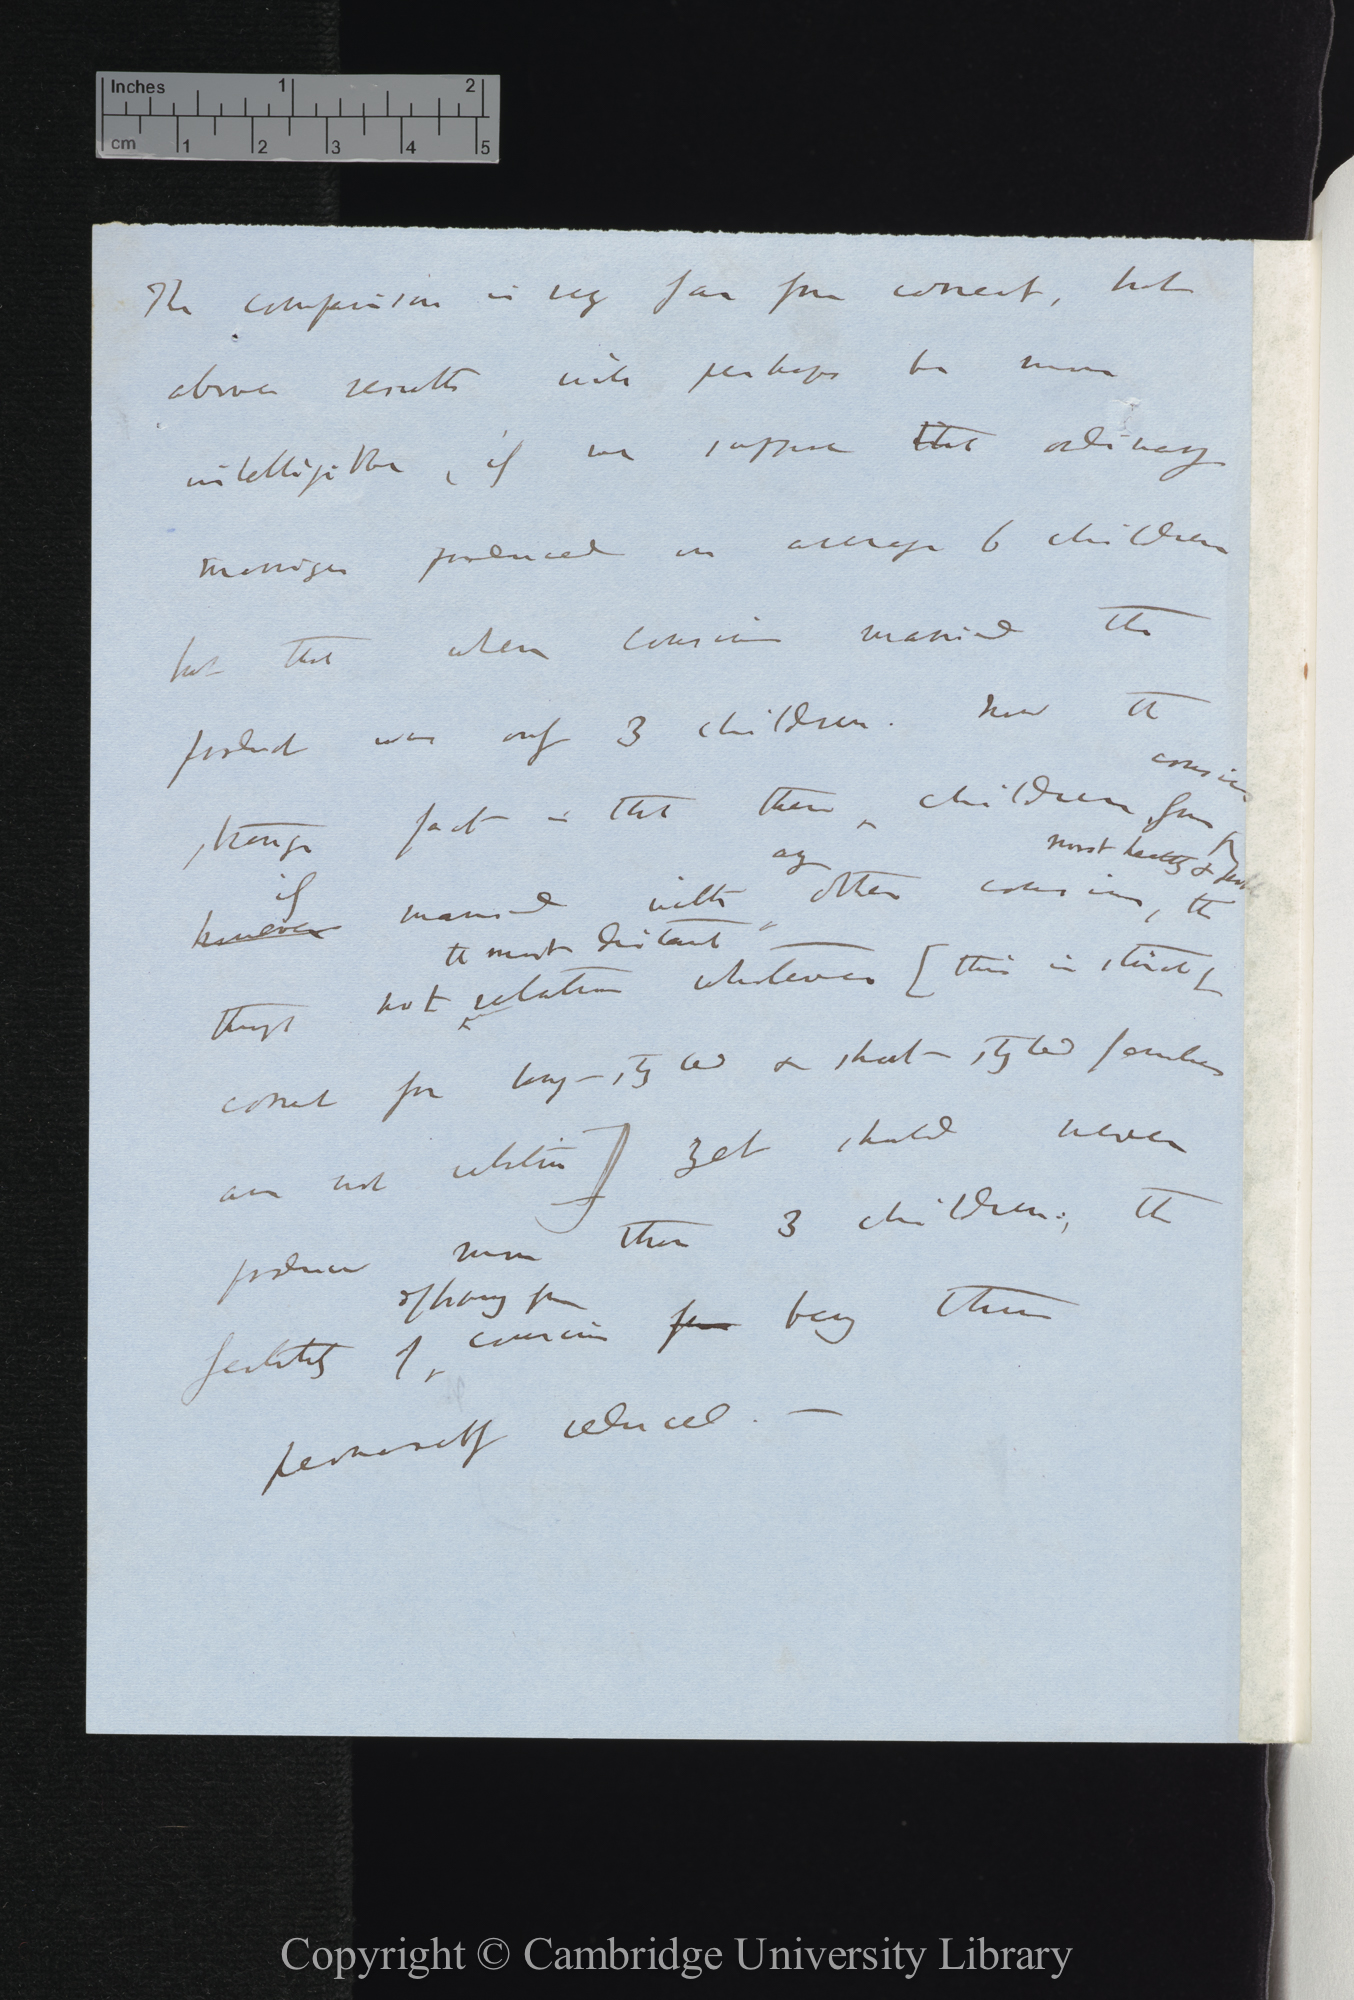 Inches 1 2
cm 1 2 3 4 5
The comparison is very far from correct, but
above results will perhaps be more
intelligible, if we suppose that ordinary
marriages produced on average 6 children
but that when cousins married the
product was only 3 children. Now the
cousins
strange fact is that these children, from
most healthy &
if any
however married with other cousins, the
the most distant
though not relations whatever [this is strictly
correct for long-styled & short-styled families
are not relations] yet should never
produce more than 3 children; the
offspring from
fertility of cousins from being thus
permanently reduced. —
Copyright © Cambridge University Library